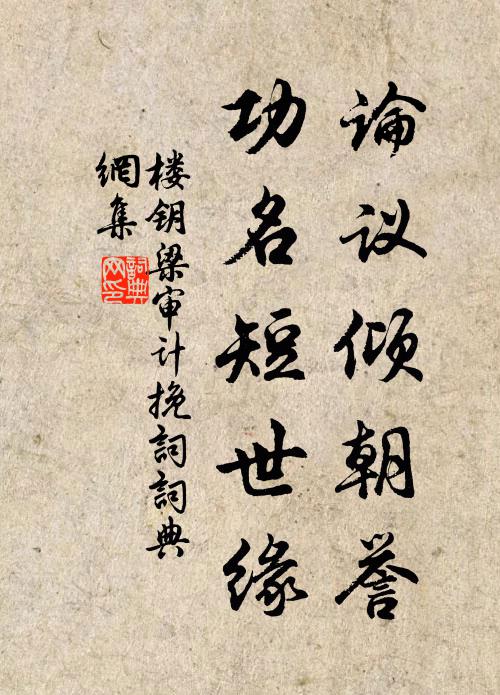 論议倾朝誉
功名短世缘
楼钥梁审计挽詞詞典
網集
詞典网印